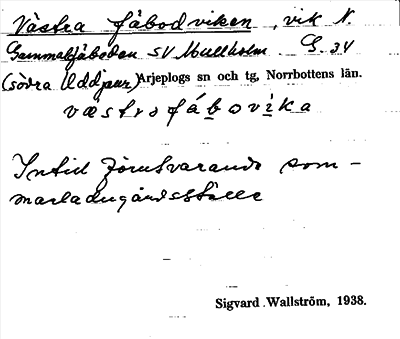 Västra fäbodviken, vik N.
Gammalfjäboden SV Mullholm G. 34
(södra Uddjaur) Arjeplogs sn och tg, Norrbottens län.
væstrofábovìka
Intid förutvarande som-
marladugårdsställe
Sigvard Wallström, 1938.